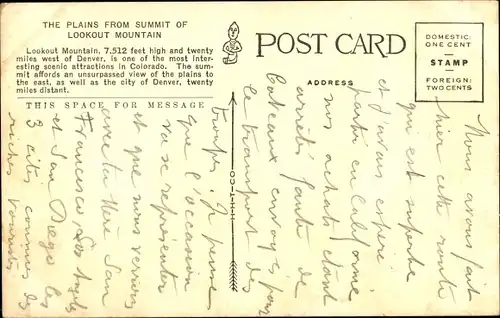 THE PLAINS FROM SUMMIT OF
LOOKOUT MOUNTAIN
Lookout Mountain, 7,512 feet high and twenty
miles west of Denver, is one of the most inter-
esting scenic attractions in Colorado. The sum-
mit affords an unsurpassed view of the plains to
the east, as well as the city of Denver, twenty
miles distant.
THIS SPACE FOR MESSAGE
POST CARD
ADDRESS
DOMESTIC:
ONE CENT
STAMP
FOREIGN:
TWO CENTS
H-H-T-CO.
Nous avons fait
hier cette route
qui est superbe
et j'avais espéré
partir en Californie
nos achats étant
arrêtés faute de
bateaux envoyés pour
le transport des
troupes. Je pense
que l'occasion
va se représenter
et que nous verrions
San
Francisco, Los Angeles
et San Diego les
3 cités connues des
riches touristes